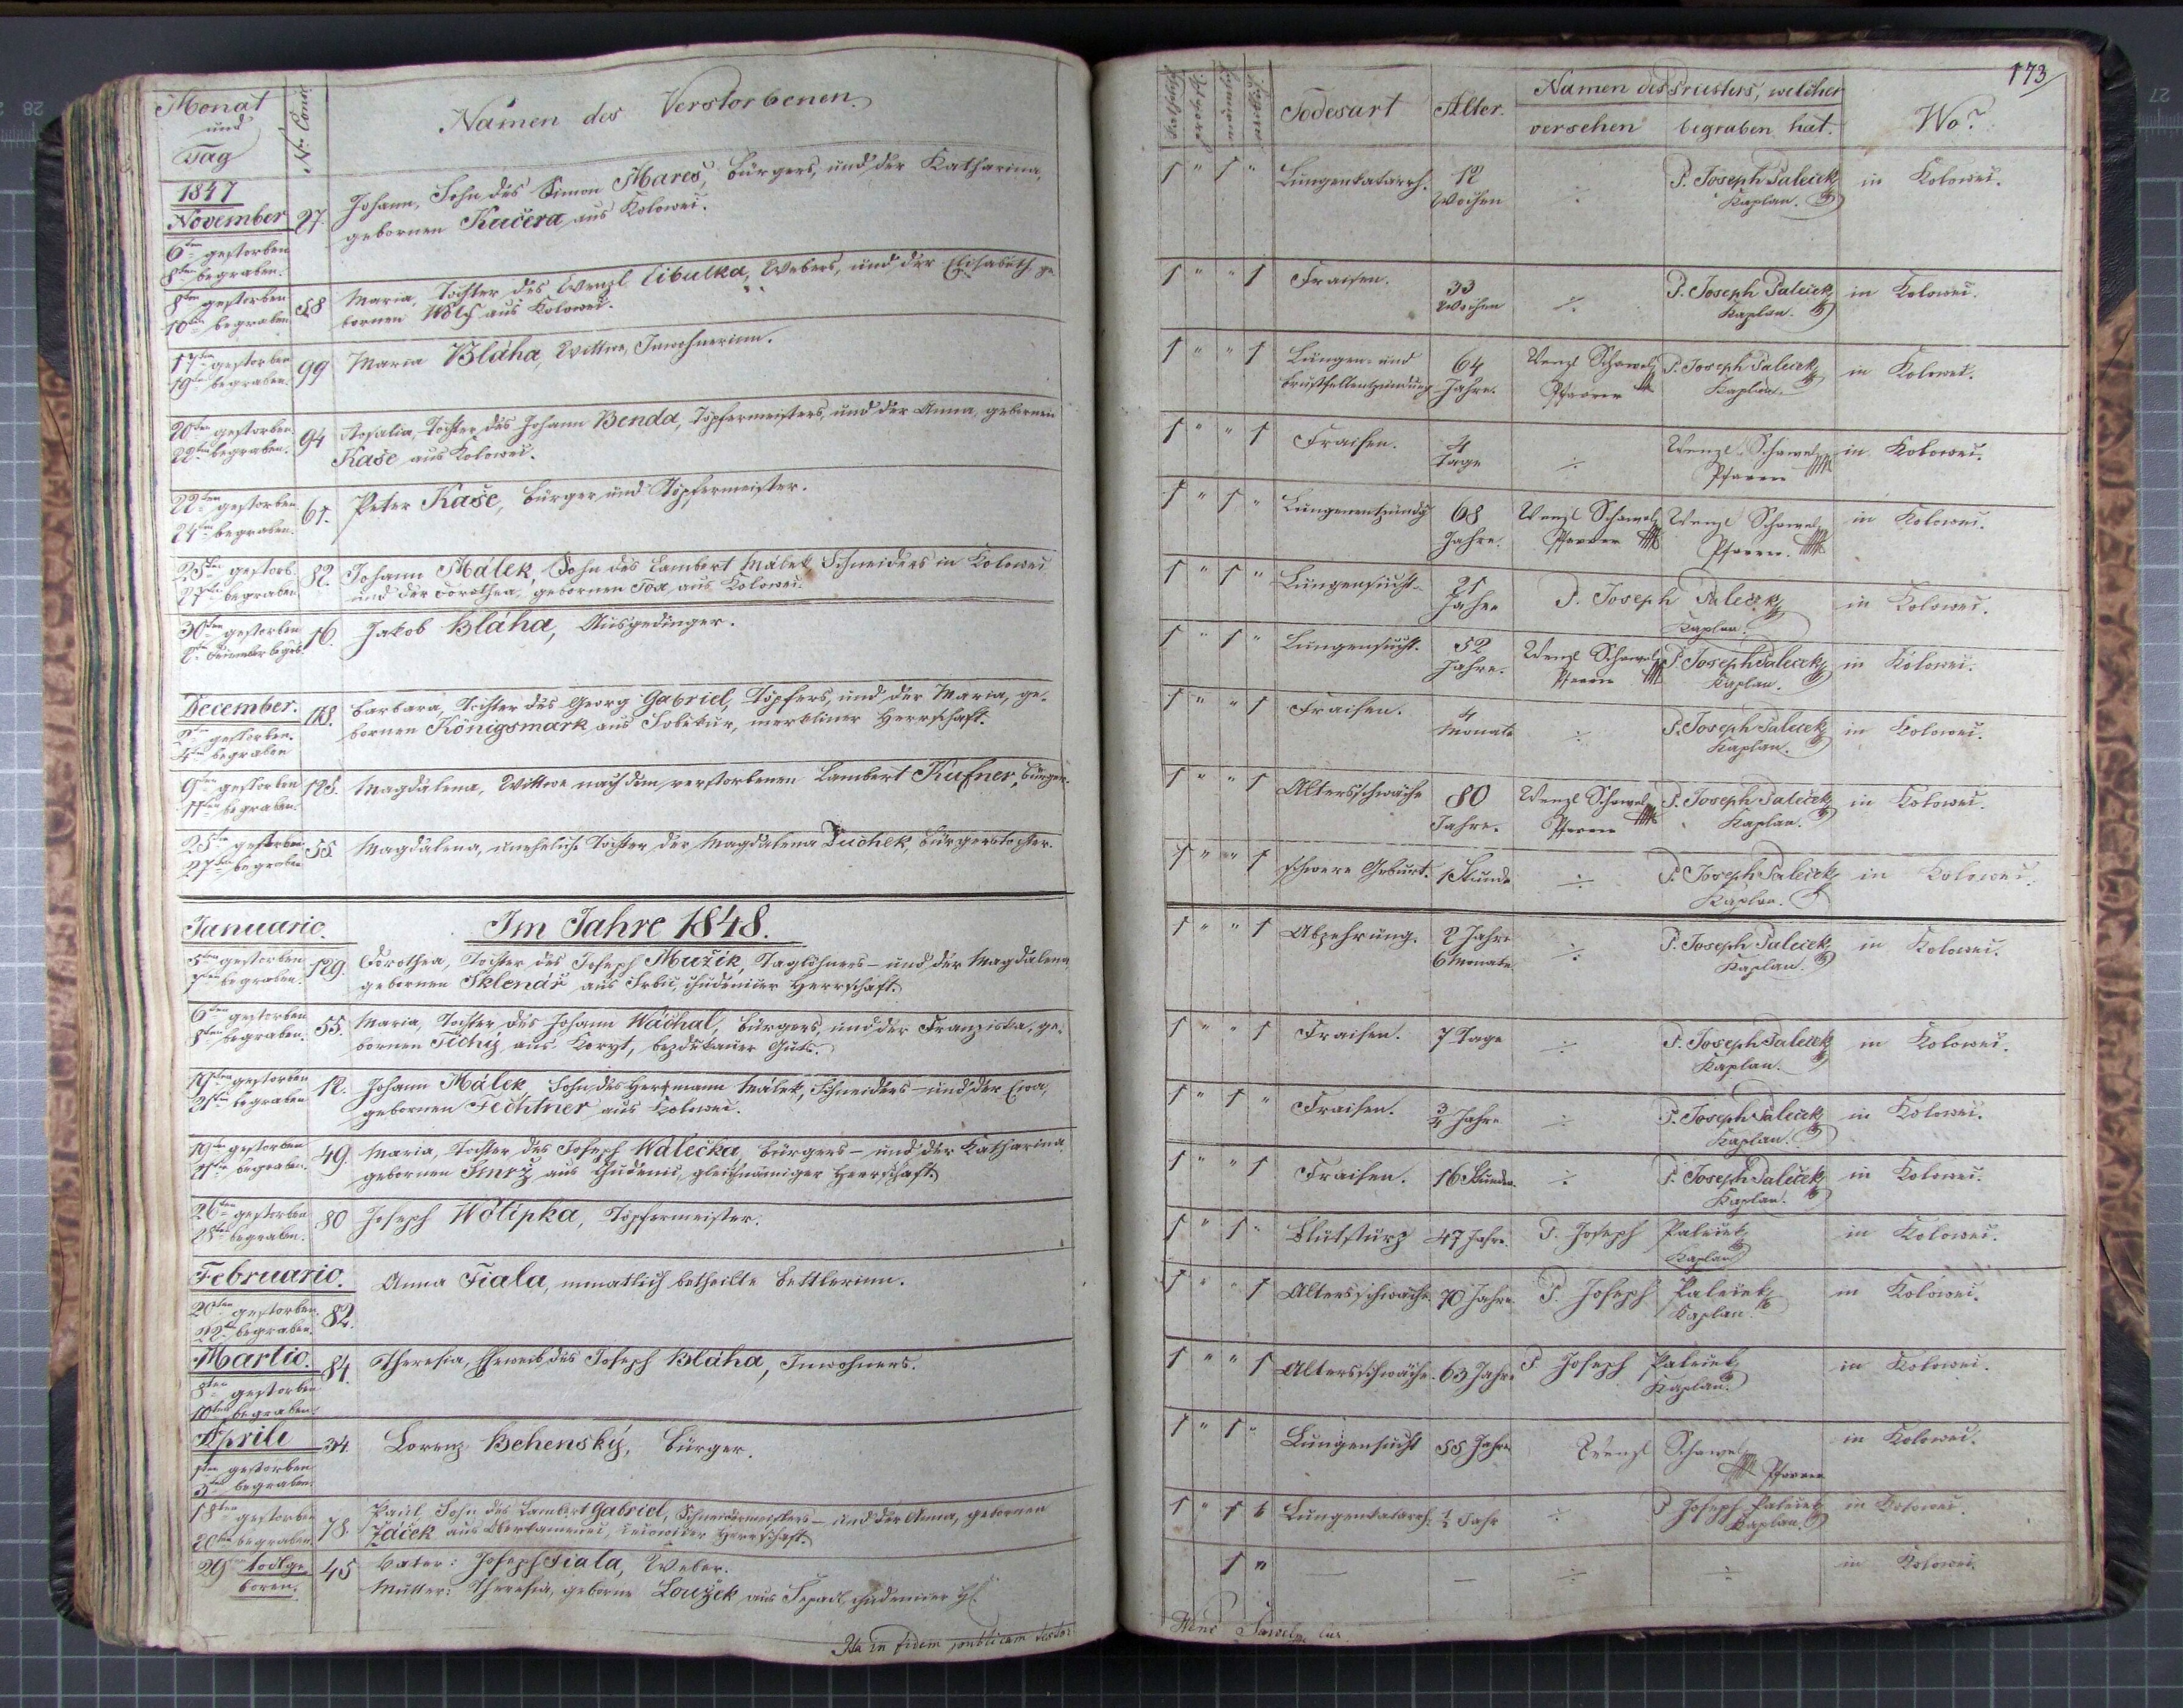 Monat
und
Tag
Nro. Conscr.
Namen des Verstorbenen.
1847
November
6ten gestorben
8ten begraben.
27.
Johann, Sohn des Simon Mareš, Bürgers, und der Katharina,
gebornen Kučera aus Koloweč.
8ten gestorben
10ten begraben.
58
Maria, Tochter des Wenzl Cibulka, Webers, und der Elisabeth ge-
bornen Wolf aus Koloweč.
17ten gestorben
19ten begraben.
99
Maria Bláha, Wittwe, Inwohnerinn.
20ten gestorben.
22ten begraben.
94
Rosalia, Tochter des Johann Benda, Töpfermeisters, und der Anna, gebornen
Kaše aus Koloweč.
22ten gestorben.
24ten begraben.
61.
Peter Kaše, Bürger und Töpfermeister.
25ten gestorb.
27ten begraben
82.
Johann Málek, Sohn des Lambert Málek Schneiders in Koloweč
und der Dorothea, gebornen aus Koloweč.
30ten gestorben
2ten December begrb.
16.
Jakob Bláha, Ausgedinger.
December.
2ten gestorben.
4ten begraben
118.
Barbara, Tochter des Georg Gabriel, Töpfers, und der Maria, ge-
bornen Königsmark aus Soběkur, merkliner Herrschaft.
9ten gestorben
11ten begraben.
125.
Magdalena, Wittwe nach dem verstorbenen Lambert Kufner, Bürger.
25ten gestorben
27ten begraben
55
Magdalena, uneheliche Tochter der Magdalena Duchek, Bürgerstochter.
Januario.
Im Jahre 1848.
5ten gestorben
7ten begraben.
129.
Dorothea, Tochter des Joseph Mužik, Taglöhners – und der Magdalena,
gebornen Sklenář aus Srbic, chudenicer Herrschaft.
6ten gestorben
8ten begraben.
55.
Maria, Tochter des Johann Wáchal, Bürgers, und der Franziska, ge-
bornen Tichý aus Koryt, bezděkauer Guts.
19ten gestorben
21ten begraben
12.
Johann Málek, Sohn des Herrmann Málek, Schneiders – und der Ewa,
gebornen Fechtner aus Kolowec.
19ten gestorben
21ten begraben.
49.
Maria, Tochter des Joseph Walečka, Bürgers – und der Katharina
gebornen aus Chudenic, gleichnamiger Herrschaft.
26ten gestorben
28ten begraben.
80
Joseph Wolipka, Töpfermeister.
Februario.
20ten gestorben.
22ten begraben.
82.
Anna Fiala, monatlich betheilte Bettlerinn.
Martio.
8ten gestorben
10ten begraben.
84.
Theresia, Eheweib des Joseph Bláha, Inwohners.
Aprili
1ten gestorben
3ten begraben.
34
Lorenz Běhenský, Bürger.
18ten gestorben
20ten begraben.
78.
Paul, Sohn des Lambert Gabriel, Schneidermeisters – und der Anna, gebornen
Žáček aus Oberkamenic, Herrschaft.
29ten todtge-
boren.
45
Vater: Joseph Fiala, Weber.
Mutter: Theresia, geborne Loužek aus chudenicer H.
Ita in fidem publicam testor
173
Todesart
Alter.
Namen des Priesters, welcher
versehen
begraben hat.
Wo?
1 " 1 " Lungenkatarrh. 12 Wochen ÷ P. Joseph Paleček Kaplan. in Kolowec.
1 " " 1 Fraisen. 33 Wochen ÷ P. Joseph Paleček Kaplan. in Kolowec.
1 " " 1 Lungen- und Brustfellentzündung 64 Jahre. Wenzl Schawel Pfarrer P. Joseph Paleček Kaplan. in Kolowec.
1 " " 1 Fraisen. 4 Tage ÷ Wenzl Schawel Pfarrer in Kolowec.
1 " 1 " Lungenentzündg 68 Jahre. Wenzl Schawel Pfarrer Wenzl Schawel Pfarrer. in Kolowec.
1 " 1 " Lungensucht. 21 Jahre P. Joseph Paleček Kaplan. in Kolowec.
1 " 1 " Lungensucht. 52 Jahre. Wenzl Schawel Pfarrer P. Joseph Paleček Kaplan. in Kolowec.
1 " " 1 Fraisen. 4 Monate ÷ P. Joseph Paleček Kaplan. in Kolowec.
1 " " 1 Altersschwäche 80 Jahre. Wenzl Schawel Pfarrer P. Joseph Paleček Kaplan. in Kolowec.
1 " " 1 schwere Geburt. 1 Stunde ÷ P. Joseph Paleček Kaplan. in Kolowec.
1 " " 1 Abzehrung. 2 Jahre 6 Monate ÷ P. Joseph Paleček Kaplan. in Kolowec.
1 " " 1 Fraisen. 7 Tage ÷ P. Joseph Paleček Kaplan. in Kolowec.
1 " 1 " Fraisen. 3/4 Jahre ÷ P. Joseph Paleček Kaplan. in Kolowec.
1 " " 1 Fraisen. 16 Stunden. ÷ P. Joseph Paleček Kaplan. in Kolowec.
1 " 1 " Blutsturz 47 Jahre. P. Joseph Paleček Kaplan in Kolowec.
1 " " 1 Altersschwäche. 70 Jahre. P. Joseph Paleček Kaplan. in Kolowec.
1 " " 1 Altersschwäche. 63 Jahre P Joseph Paleček Kaplan. in Kolowec.
1 " 1 " Lungensucht 55 Jahre Wenzl Schawel Pfarrer in Kolowec.
1 " 1 Lungenkatarrh. 1/2 Jahr ÷ P Joseph Paleček Kaplan. in Kolowec.
1 " — — ÷ ÷ in Kolowec.